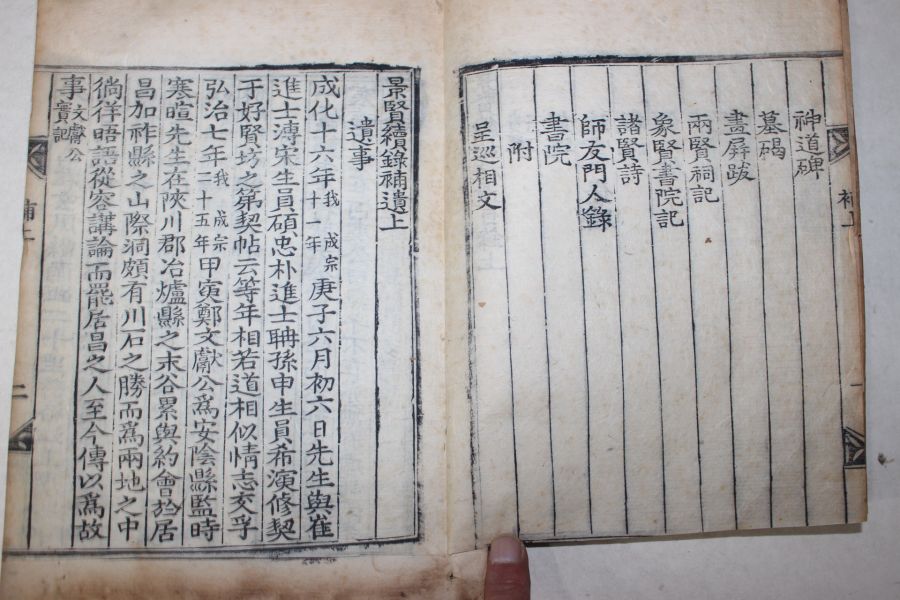 神道碑
墓碣
畫屏跋
兩賢祠記
象賢書院記
諸賢詩
師友門人錄
書院
附
呈巡相文
補上
景賢續錄補遺上
遺事
成化十六年我成宗十一年庚子六月初六日先生與崔
進士漙宋生員碩忠朴進士聃孫申生員希演修契
于好賢坊之第契帖云等年相若道相似情志交孚
弘治七年我成宗二十五年甲寅鄭文獻公爲安陰縣監時
寒暄先生在陜川郡冶爐縣之末谷累與約會於居
昌加祚縣之山際洞頗有川石之勝而爲兩地之中
徜徉晤語從容講論而罷居昌之人至今傳以爲故
事文獻公實記
補上
二